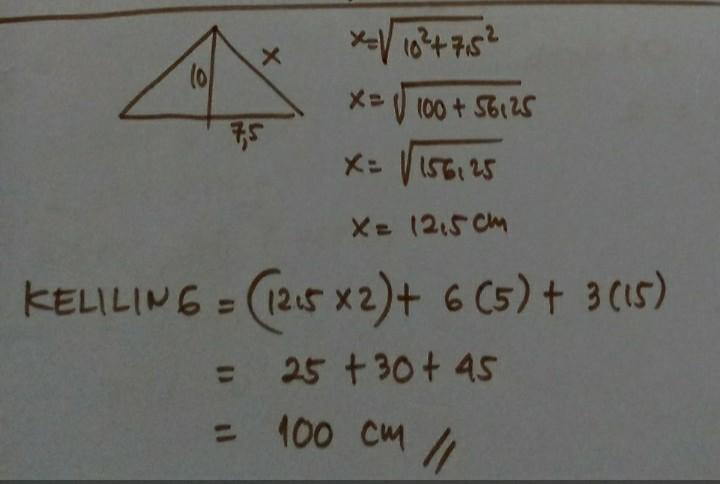 10
x
7,5
x=√10²+7,5²
x=√100+56,25
x=√156,25
x= 12,5 cm
KELILING = (12,5 x2)+ 6(5)+ 3(15)
= 25 +30+ 45
= 100 cm //